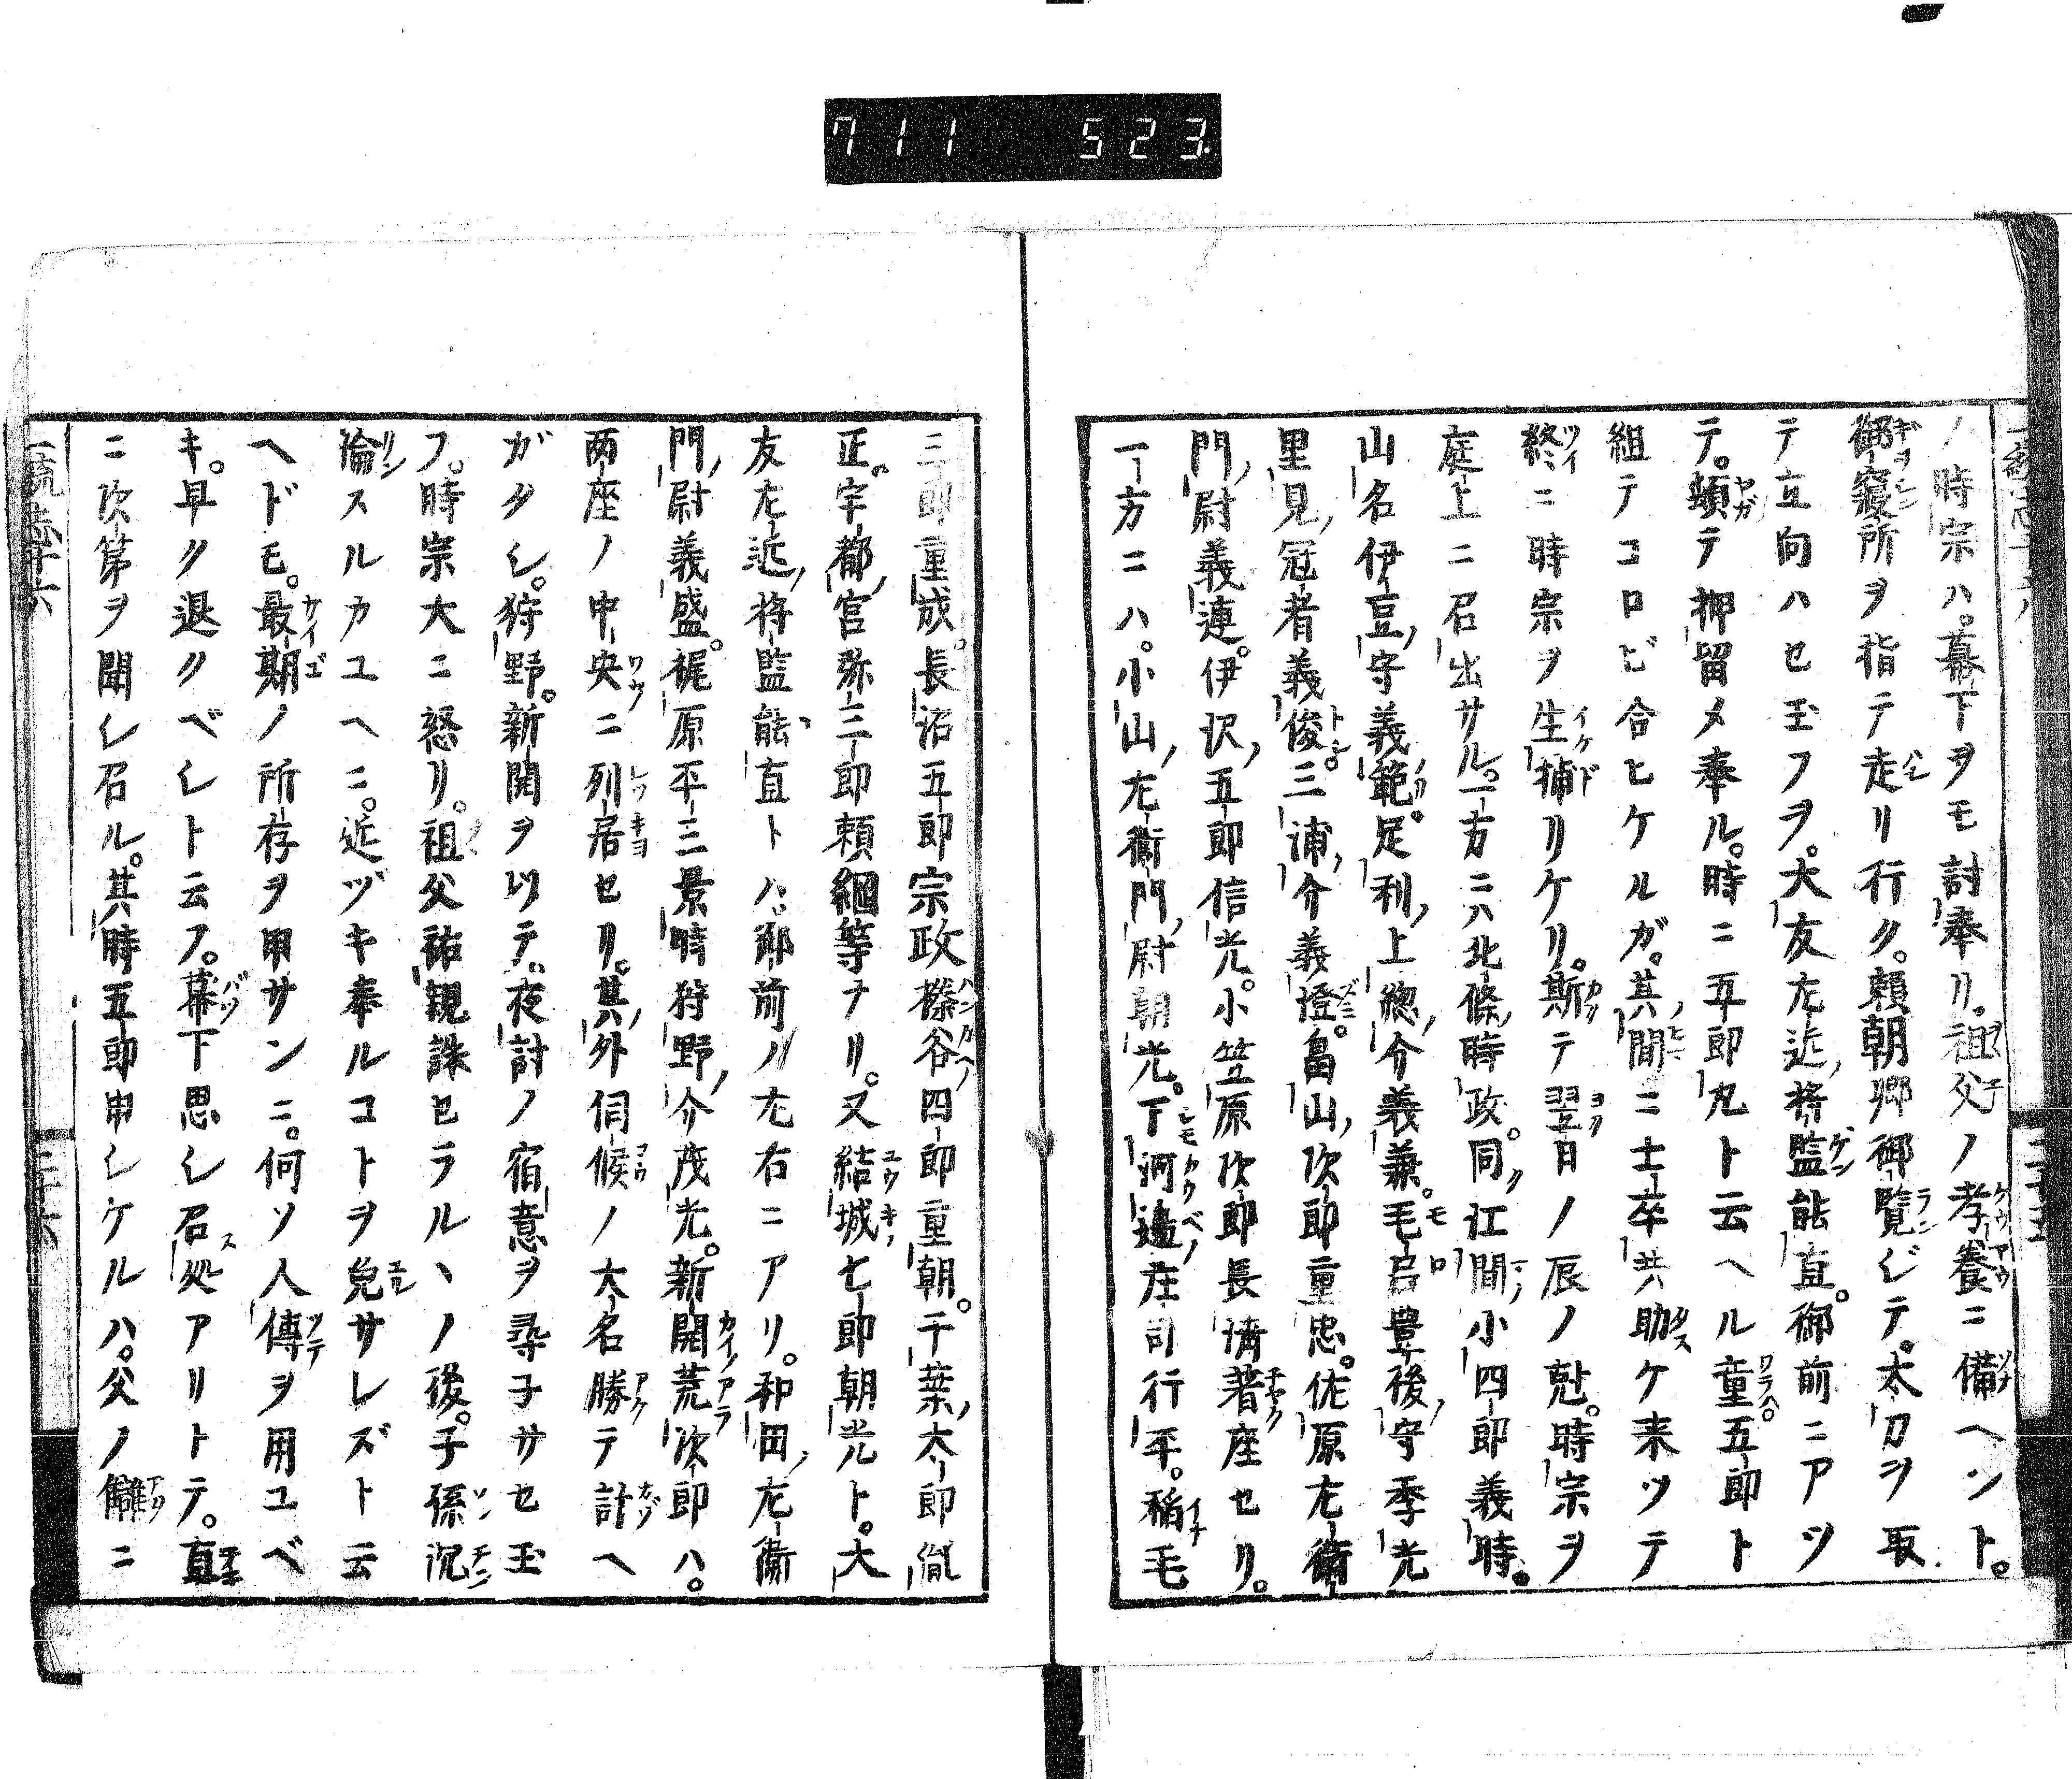 711 523
ノ時宗ハ。幕下ヲモ討奉リ。祖父ノ孝養ニ備ヘント。
御寝所ヲ指テ走リ行ク。頼朝卿御覧ジテ。太刀ヲ取
テ立向ハセ玉フヲ。大友左近将監能直。御前ニアツ
テ。頓テ押留メ奉ル。時ニ五郎丸ト云ヘル童。五郎ト
組テコロビ合ヒケルガ。其間ニ士卒共助ケ来ツテ
終ニ時宗ヲ生捕リケリ。斯テ翌日ノ辰ノ尅。時宗ヲ
庭上ニ召出サル。一方ニハ北條時政。同江間小四郎義時。
山名伊豆守義範。足利上総介義兼。毛呂豊後守季光
里見冠者義俊。三浦介義澄。畠山次郎重忠。佐原左衛
門尉義連。伊沢五郎信光。小笠原次郎長清著座セリ。
一方ニハ。小山左衛門尉朝光。下河邉庄司行平。稲毛
三郎重成。長沼五郎宗政榛谷四郎重朝。千葉太郎胤
正。宇都宮弥三郎頼綱等ナリ。又結城七郎朝光ト。大
友左近将監能直トハ。御前ノ左右ニアリ。和田左衛
門尉義盛。梶原平三景時狩野介茂光。新開荒次郎ハ。
両座ノ中央ニ列居セリ。其外伺候ノ大名勝テ計ヘ
ガタシ。狩野。新開ヲ以テ。夜討ノ宿意ヲ尋子サセ玉
フ。時宗大ニ怒リ。祖父祐親誅セラルヽノ後。子孫沉
淪スルカユヘニ。近ヅキ奉ルコトヲ免サレズト云
ヘドモ。最期ノ所存ヲ申サンニ。何ソ人傳ヲ用ユベ
キ。早ク退クベシト云フ。幕下思シ召処アリトテ。直
ニ次第ヲ聞シ召ル。其時五郎申シケルハ。父ノ讎ニ